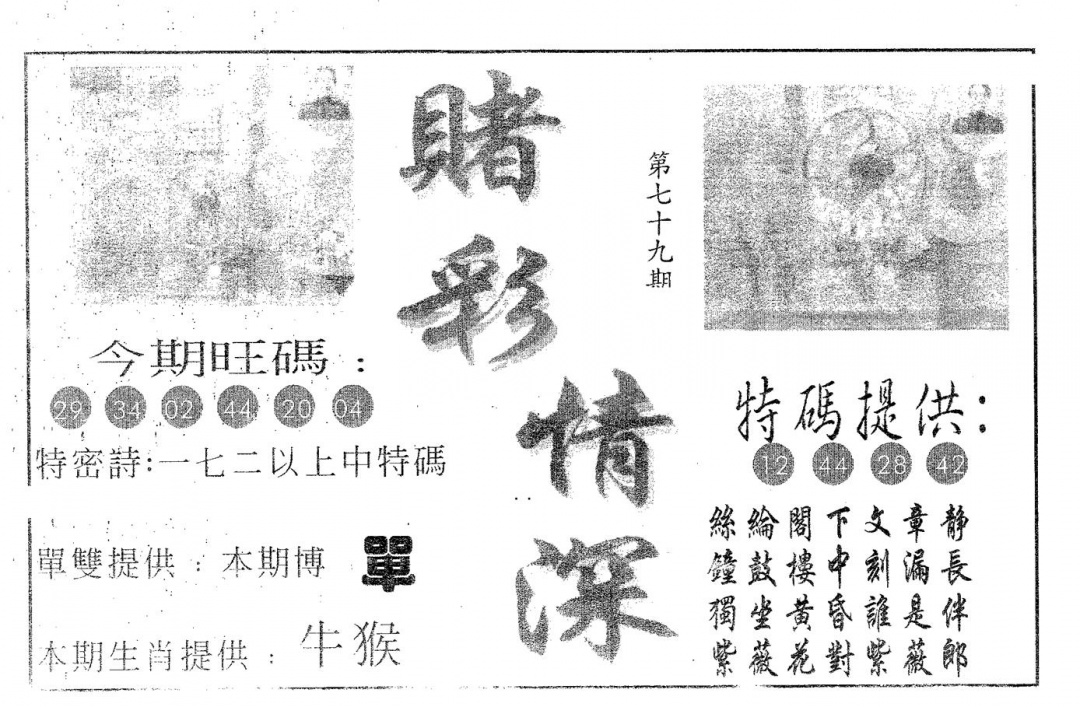 賭彩情深
第七十九期
今期旺碼：
29 34 02 44 20 04
特密詩:一七二以上中特碼
單雙提供：本期博 單
本期生肖提供：牛猴
特碼提供:
12 44 28 42
絲綸閣下文章靜
鐘鼓樓中刻漏長
獨坐黃昏誰是伴
紫薇花對紫薇郎